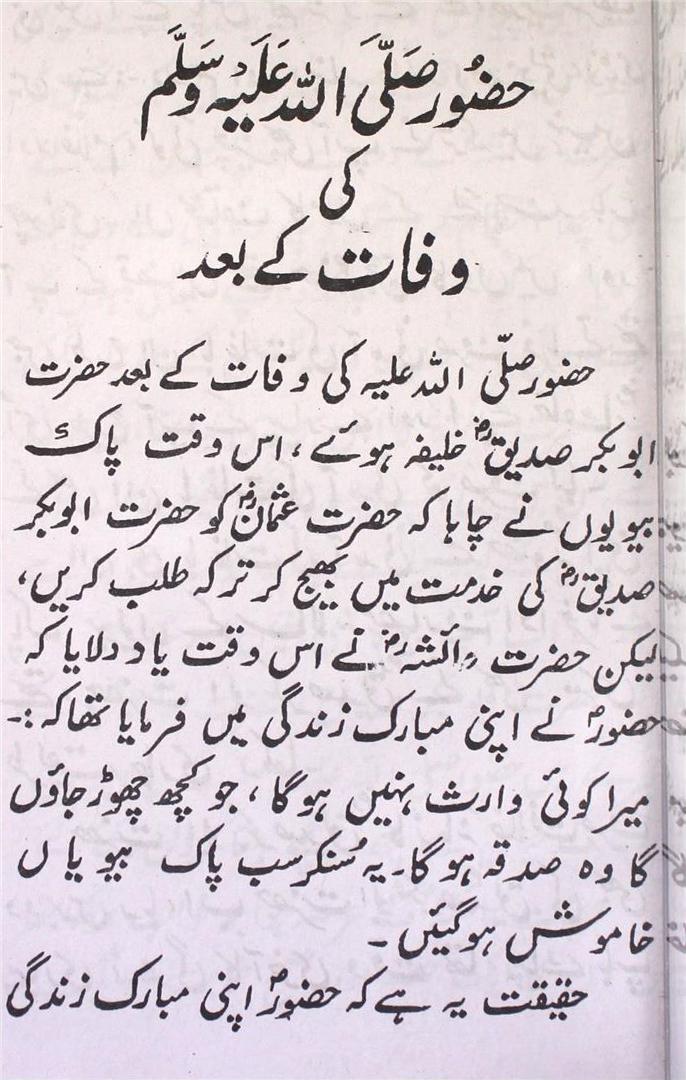 حضُور صَلَّی اللہ عَلَیْہِ وَسَلَّم
کی
وفات کے بعد
حضور صلّی اللہ علیہ کی وفات کے بعد حضرت
ابوبکر صدیقؓ خلیفہ ہوئے، اس وقت پاک
بیویوں نے چاہا کہ حضرت عثمانؓ کو حضرت ابوبکر
صدیقؓ کی خدمت میں بھیج کر ترکہ طلب کریں،
لیکن حضرت عائشہؓ نے اس وقت یاد دلایا کہ
حضورؐ نے اپنی مبارک زندگی میں فرمایا تھا کہ:۔
میرا کوئی وارث نہیں ہوگا، جو کچھ چھوڑ جاؤں
گا وہ صدقہ ہوگا۔ یہ سُنکر سب پاک بیویاں
خاموش ہوگئیں۔
حقیقت یہ ہے کہ حضورؐ اپنی مبارک زندگی